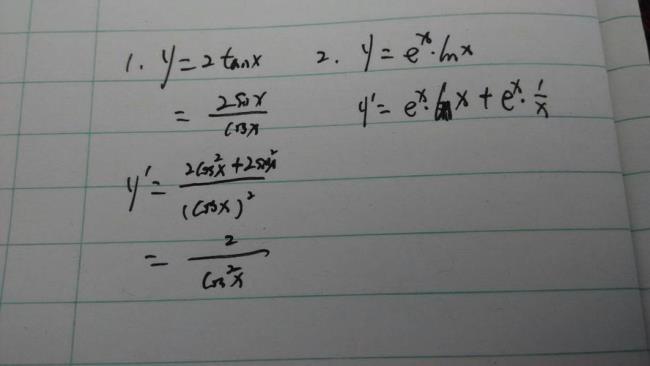 1. y=2tanx
= 2sinx / cosx
y'= 2cos²x+2sin²x / (cosx)²
= 2 / cos²x
2. y=eˣ·lnx
y'=eˣ·lnx+eˣ·1/x